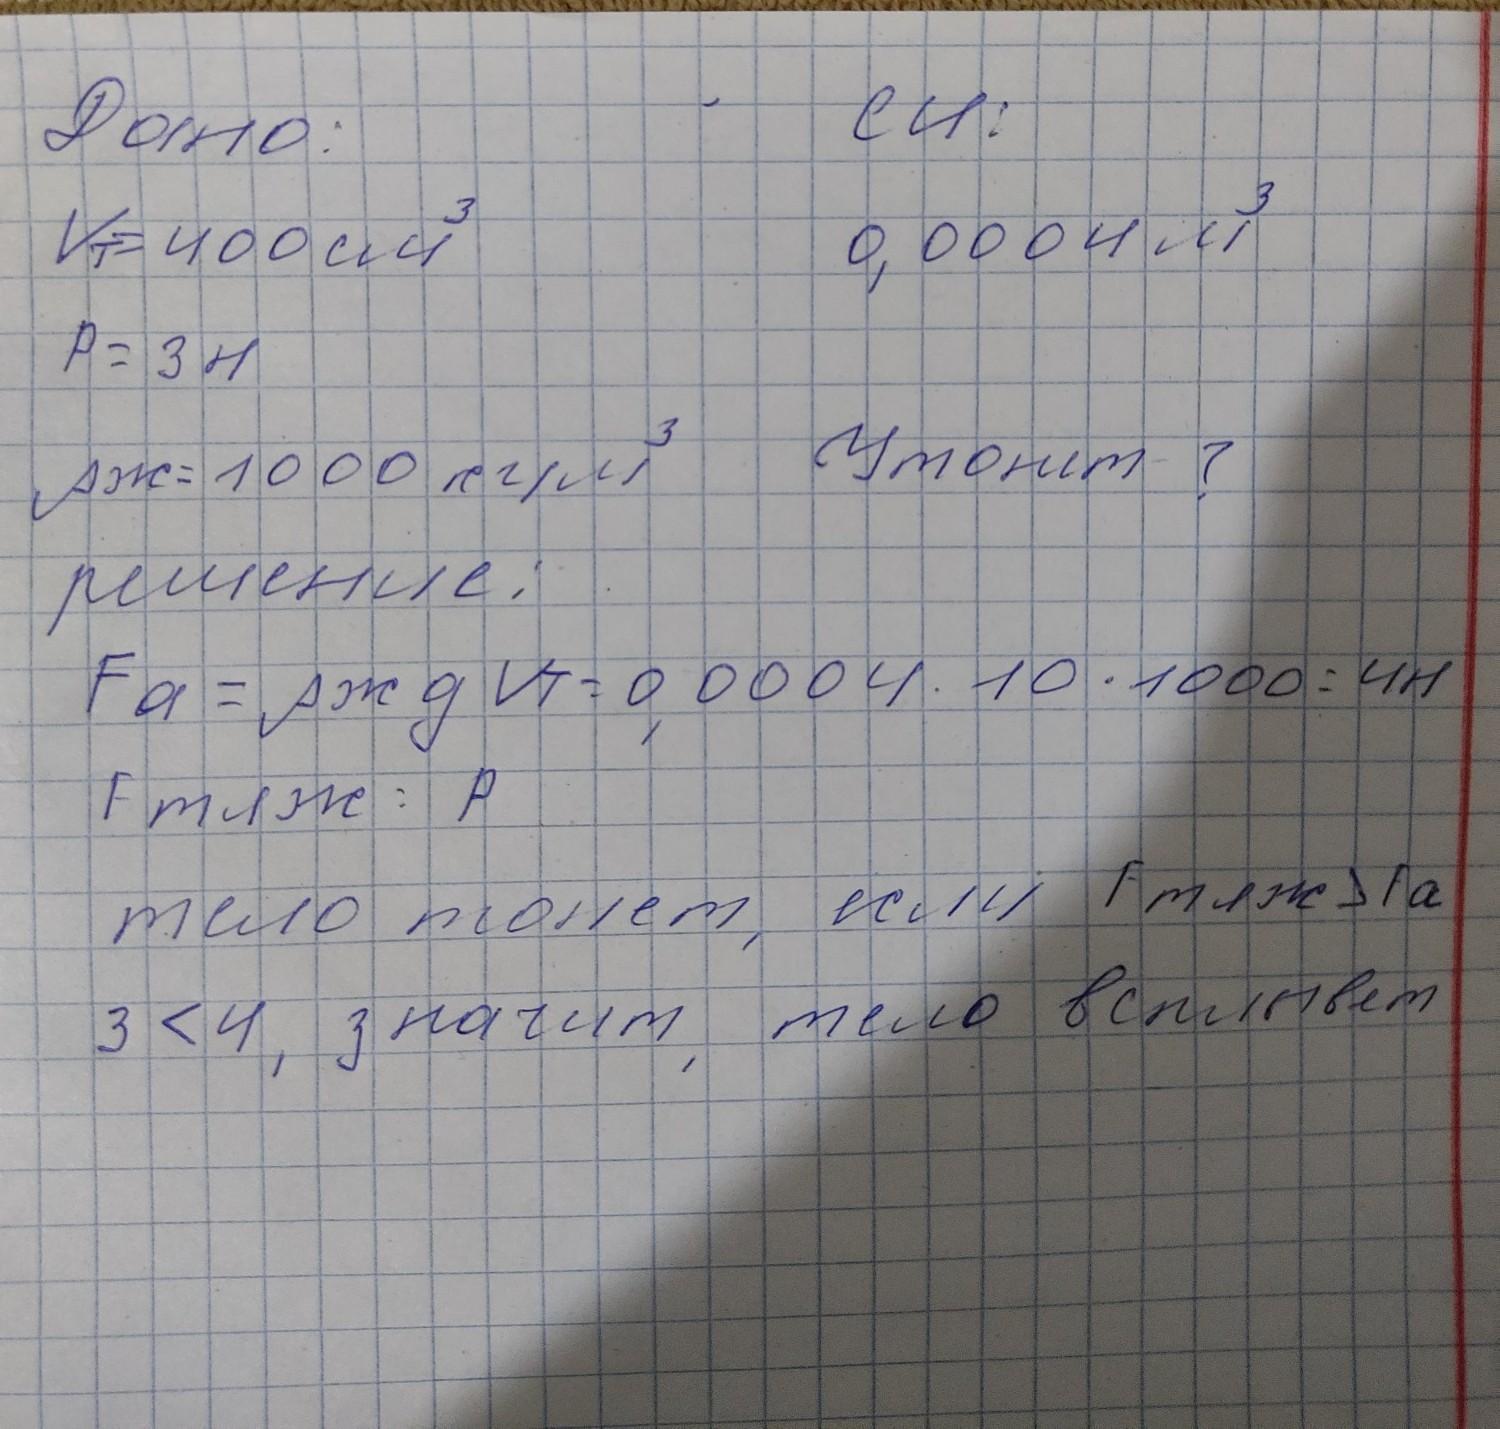 Дано: СИ:
Vт=400см³ 0,0004м³
P=3Н
ρж=1000кг/м³ Утонит?
решение:
Fа=ρжgVт=0,0004·10·1000=4Н
Fтяж=P
тело тонет, если Fтяж>Fа
3<4, значит, тело всплывет